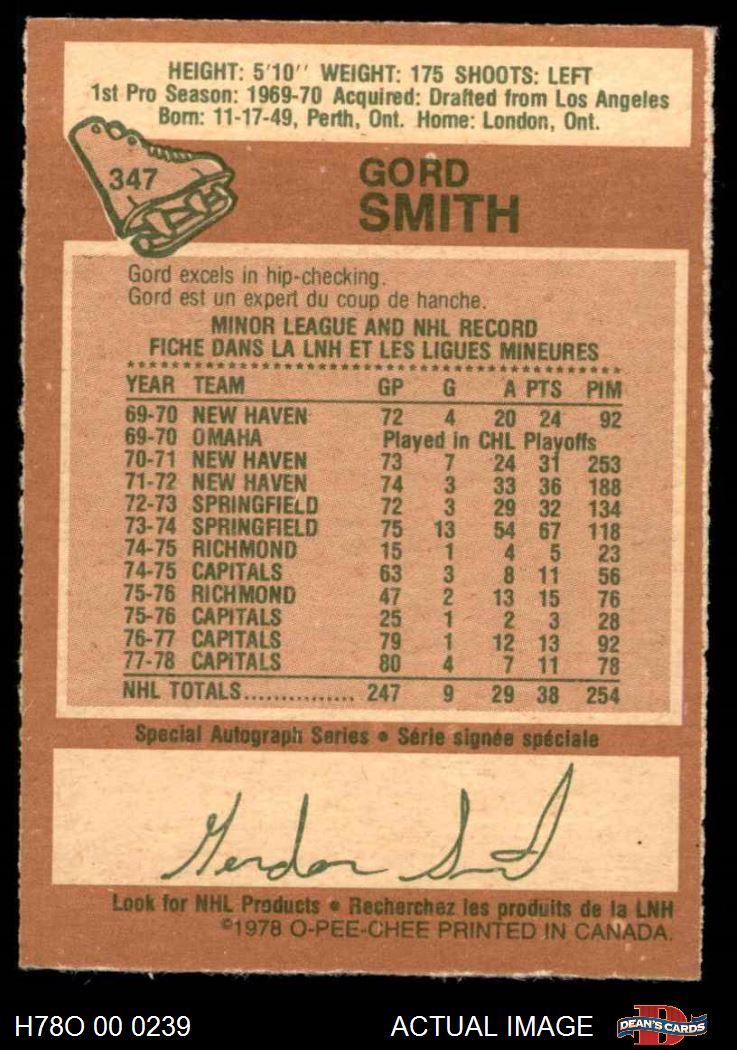 HEIGHT: 5'10'' WEIGHT: 175 SHOOTS: LEFT
1st Pro Season: 1969-70 Acquired: Drafted from Los Angeles
Born: 11-17-49, Perth, Ont. Home: London, Ont.
347
GORD
SMITH
Gord excels in hip-checking.
Gord est un expert du coup de hanche.
MINOR LEAGUE AND NHL RECORD
FICHE DANS LA LNH ET LES LIGUES MINEURES
YEAR TEAM GP G A PTS PIM
69-70 NEW HAVEN 72 4 20 24 92
69-70 OMAHA Played in CHL Playoffs
70-71 NEW HAVEN 73 7 24 31 253
71-72 NEW HAVEN 74 3 33 36 188
72-73 SPRINGFIELD 72 3 29 32 134
73-74 SPRINGFIELD 75 13 54 67 118
74-75 RICHMOND 15 1 4 5 23
74-75 CAPITALS 63 3 8 11 56
75-76 RICHMOND 47 2 13 15 76
75-76 CAPITALS 25 1 2 3 28
76-77 CAPITALS 79 1 12 13 92
77-78 CAPITALS 80 4 7 11 78
NHL TOTALS................ 247 9 29 38 254
Special Autograph Series • Série signée spéciale
Gordon Smith
Look for NHL Products • Recherchez les produits de la LNH
©1978 O-PEE-CHEE PRINTED IN CANADA.
H78O 00 0239 ACTUAL IMAGE DEAN'S CARDS